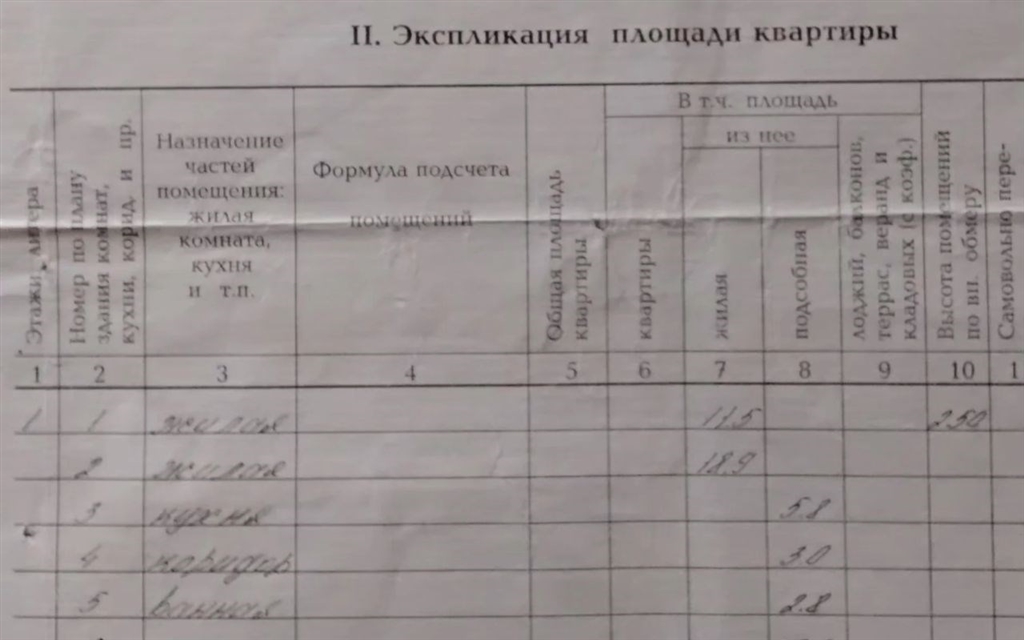 II. Экспликация площади квартиры
Этажи, литера
Номер по плану здания комнат, кухни, корид. и пр.
Назначение
частей
помещения:
жилая
комната,
кухня
и т.п.
Формула подсчета
помещений
Общая площадь квартиры
В т.ч. площадь
из нее
квартиры
жилая
подсобная
лоджий, балконов, террас, веранд и кладовых (с коэф.)
Высота помещений по вн. обмеру
Самовольно пере-
1 2 3 4 5 6 7 8 9 10 1
1 1 жилая 11.5 250
2 жилая 18.9
3 кухня 5.8
4 коридор 3.0
5 ванная 2.8